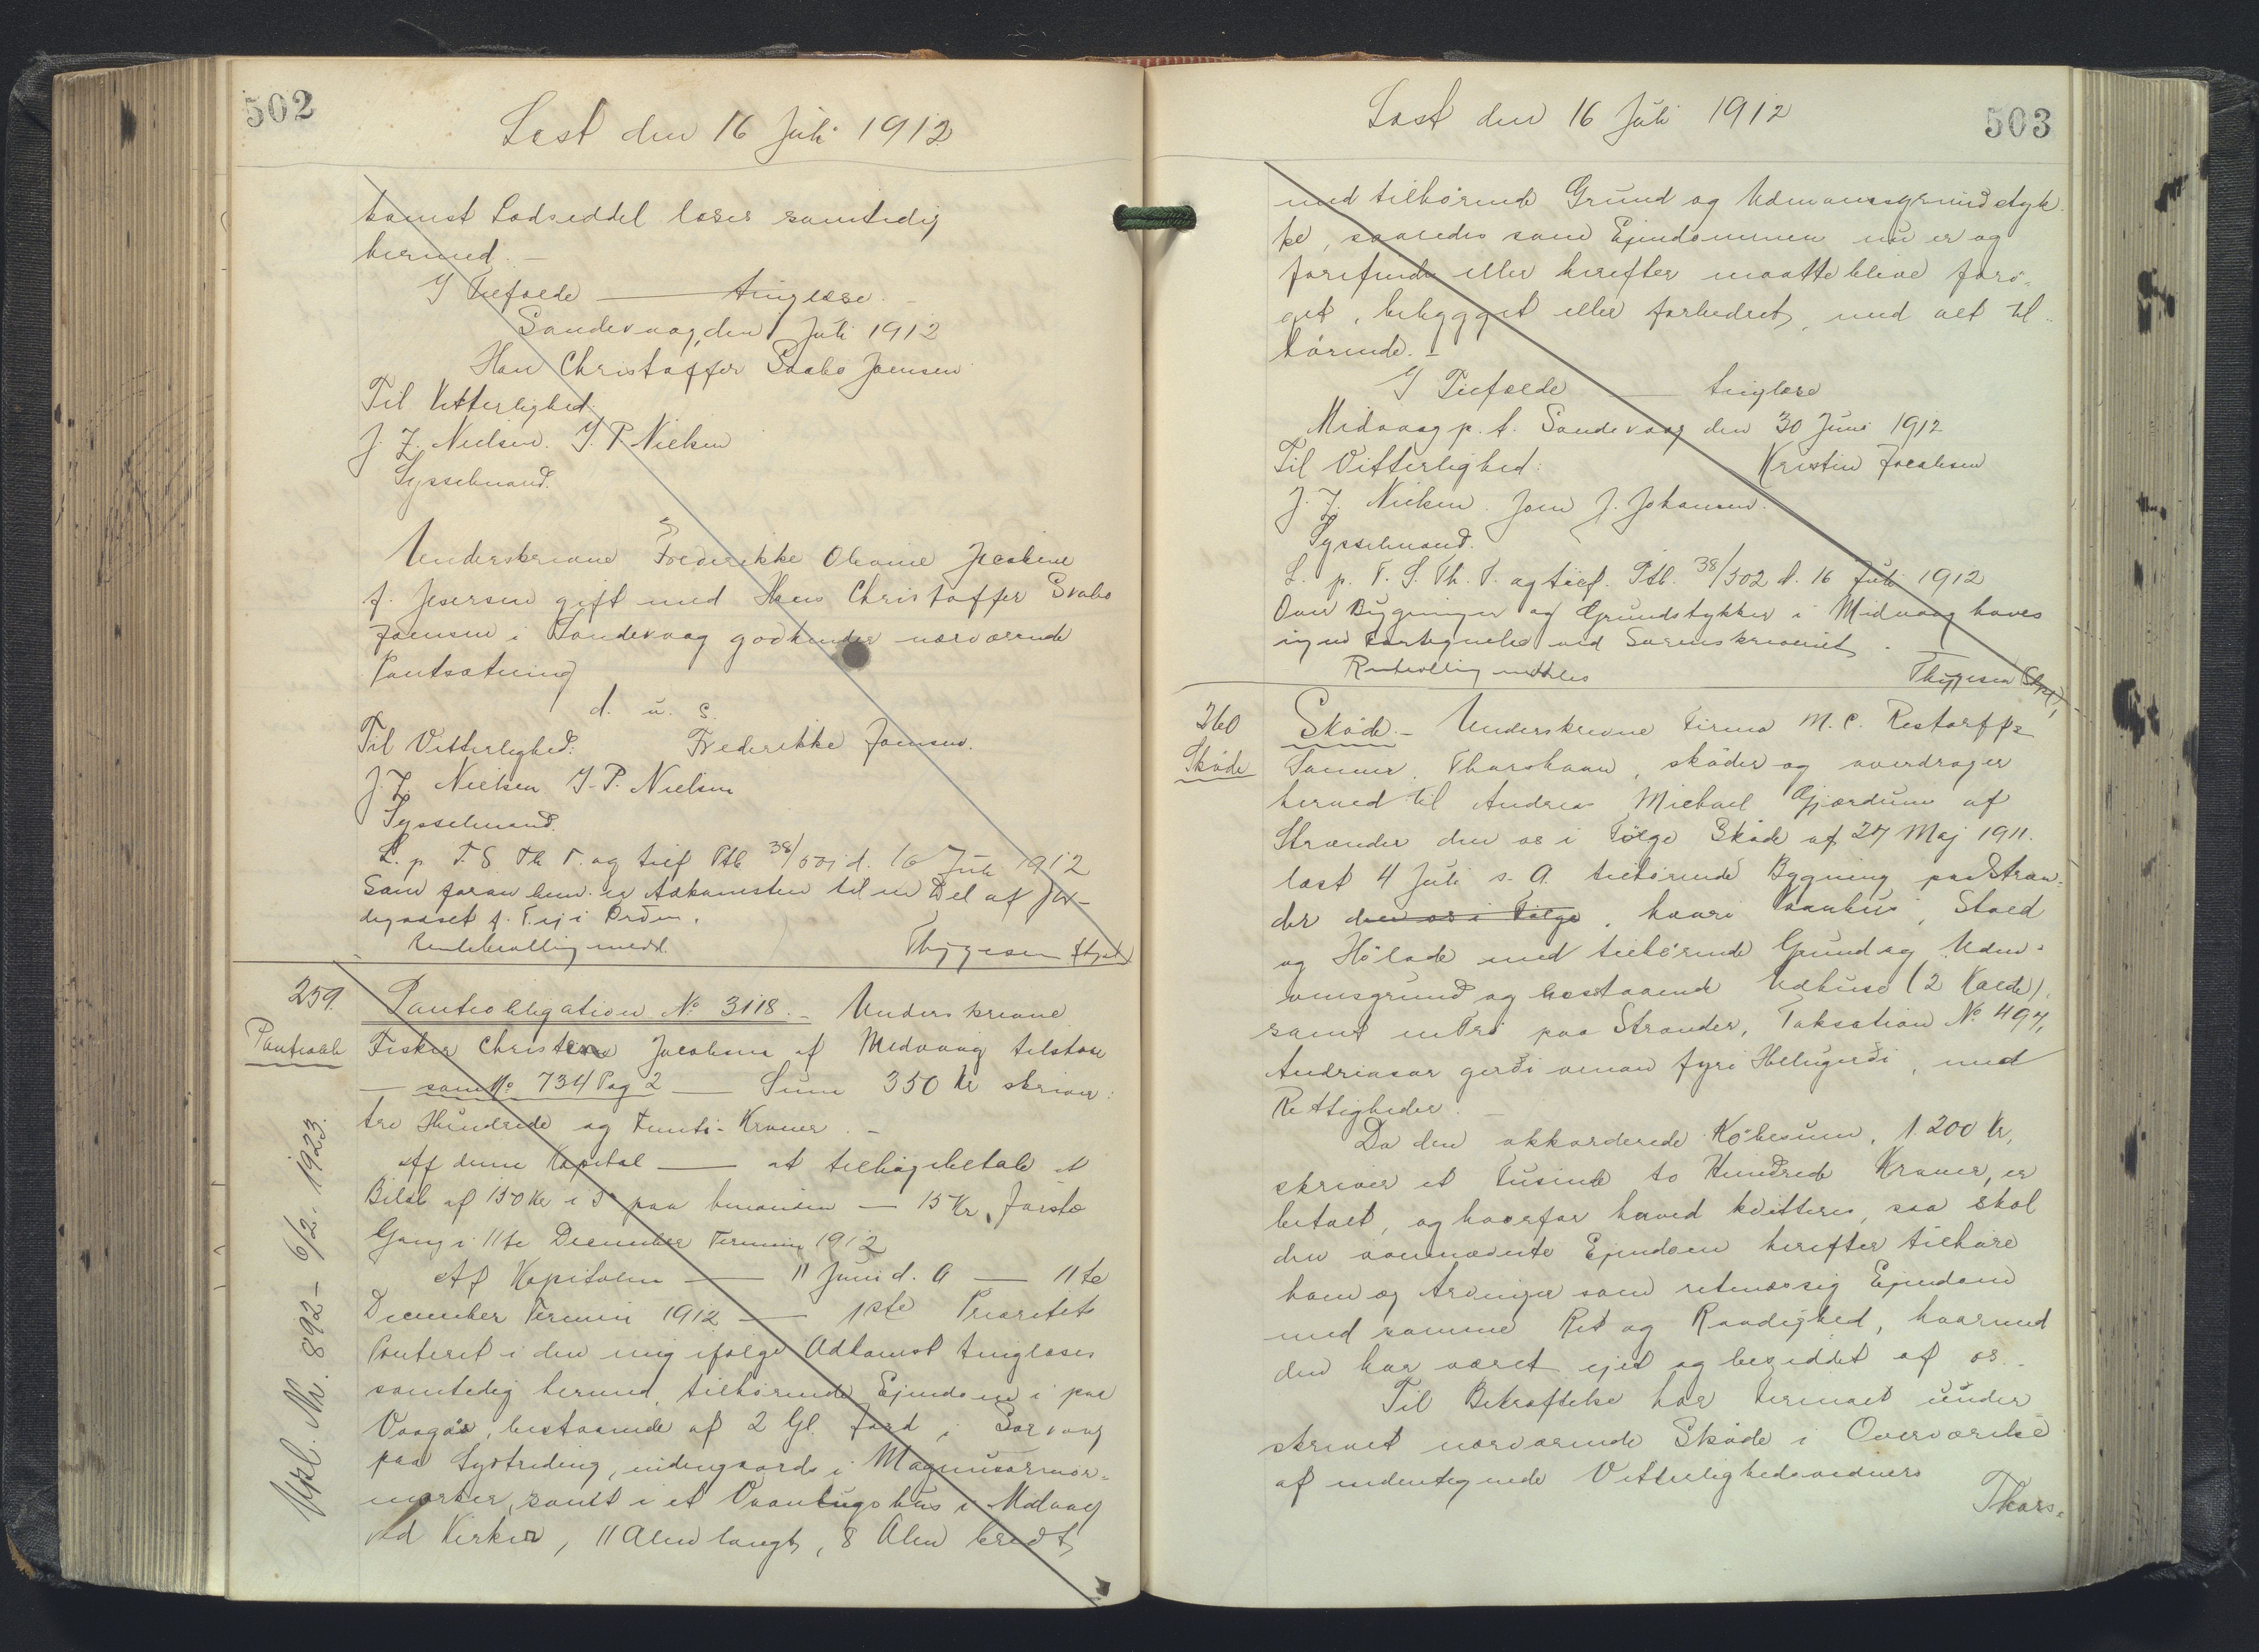 502
Læst den 16 Juli 1912
komst Lodseddel læses samtidig
hermed. —
I Tilfælde — tinglæse.
Sandevaag, den 1 Juli 1912
Han Christoffer Svabo Joensen
Til Vitterlighed:
J. Z. Nielsen. J. P. Nielsen
Sysselmand.
Underskrevne Frederikke Olevine Jacobine
f. Jesersen gift med Hans Christoffer Svabo
Joensen i Sandevaag godkender nærværende
Pantsætning
d. u. s.
Til Vitterlighed: Frederikke Joensen.
J. Z. Nielsen J. P. Nielsen
Sysselmand.
L. p. F. S. Th T. og tilf Ptb 38/501 d. 16 Juli 1912
Som foran bem. er Adkomsten til en Del af Jor-
degodset f. T. ej i Orden.
Rentebevilling medd.
Thygesen
259.
Panteobl
Panteobligation No 3118. — Underskrevne
Fisker Christen Jacobsen af Midvaag tilstaar
— som No 734 Pag 2 — Sum 350 Kr skriver:
tre Hundrede og Femti Kroner. —
Af denne Kapital — at tilbagebetale et
Beløb af 150 Kr i paa — 15 Kr, første
Gang i 11te December Termin 1912
Af Kapitalen — 11 Juni d. A — 11te
December Termin 1912 — 1ste Prioritet
Panteret i den mig ifølge Adkomst tinglæses
samtidig hermed, tilhørende Ejendom i paa
Vaagø, bestaaende af 2 Gl. Jord i Sørvaag
paa Lystreding, indengaards i
marker, samt i et Vaaningshus i Midvaag
ved Kirken, 11 Alen langt, 8 Alen bredt,
Afsl. Nr. 892 - 6/2. 1923.
503
Læst den 16 Juli 1912
med tilhørende Grund og Udmarksgrundstyk-
ke, saaledes som Ejendommen nu er og
forefindes eller herefter maatte blive forø-
get, bebygget eller forbedret, med alt til-
hørende. —
I Tilfælde — tinglæse
Midvaag p. t. Sandevaag den 30 Juni 1912
Til Vitterlighed: Kristin Jacobsen
J. Z. Nielsen. Joen J. Johansen.
Sysselmand.
L. p. F. S. Th. T. og tilf. Ptb. 38/502 d. 16 Juli 1912
Over Bygninger og Grundstykker i Midvaag haves
ingen Fortegnelse ved Sorenskriveriet.
Rentevilling meddeles
Thygesen
260
Skøde
Skøde. — Underskrevne Firma M. C. Restorffs
Sønner, Thorshavn, skøder og overdrager
herved til Andreas Michael Gjærdum af
Strænder den os i Følge Skøde af 27 Maj 1911.
læst 4 Juli s. A. tilhørende Bygning paa Stræn-
der den os i Følge, hvori Vaanhus, Stald
og Hølade med tilhørende Grund og Udm-
arksgrund og hosstaaende Udhuse (2 Kalde),
samt en Trø paa Strænder, Taksation No 497,
Andriasar gerði oman fyri Helugerði, med
Rettigheder. —
Da den akkorderede Købesum, 1.200 Kr,
skriver et Tusinde to Hundrede Kroner, er
betalt, og hvorfor herved kvitteres, saa skal
den ovennævnte Ejendom herefter tilhøre
ham og Arvinger som retmæssig Ejendom
med samme Ret og Raadighed, hvormed
den har været ejet og besiddet af os. —
Til Bekræftelse har Firmaet under
skrevet nærværende Skøde i Overværelse
af undertegnede Vitterlighedsvidner.
Thors-